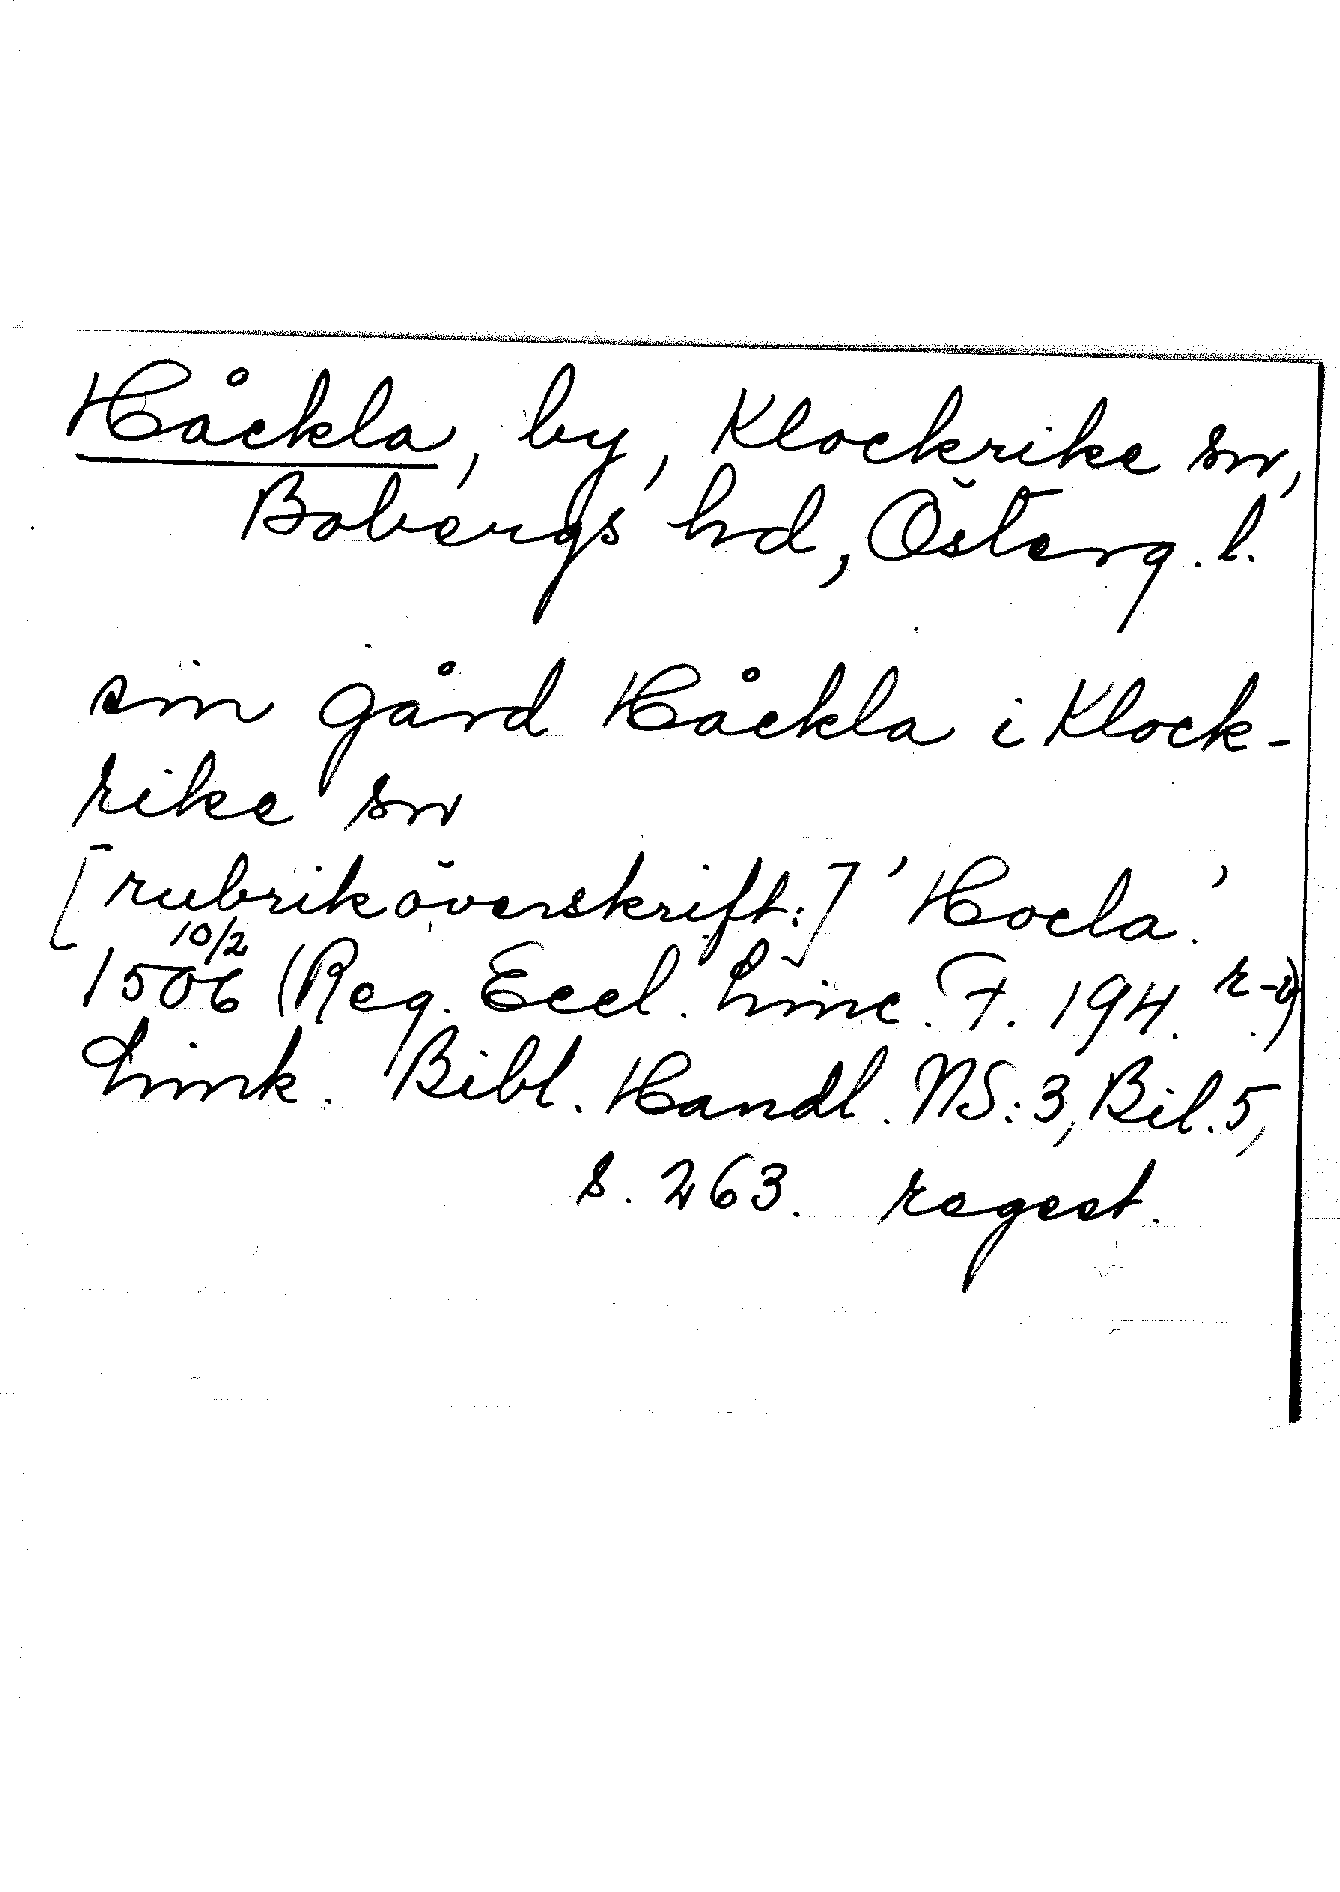 Håckla, by, Klockrike sn,
Bobergs hd, Österg. l.
sin gård Håckla i Klock-
rike sn
[rubriköverskrift:] 'Hocla.'
1506 10/2 (Reg. Eccl. Linc. F. 194. r-v)
Link. Bibl. Handl. NS:3, Bil. 5,
s. 263. regest.